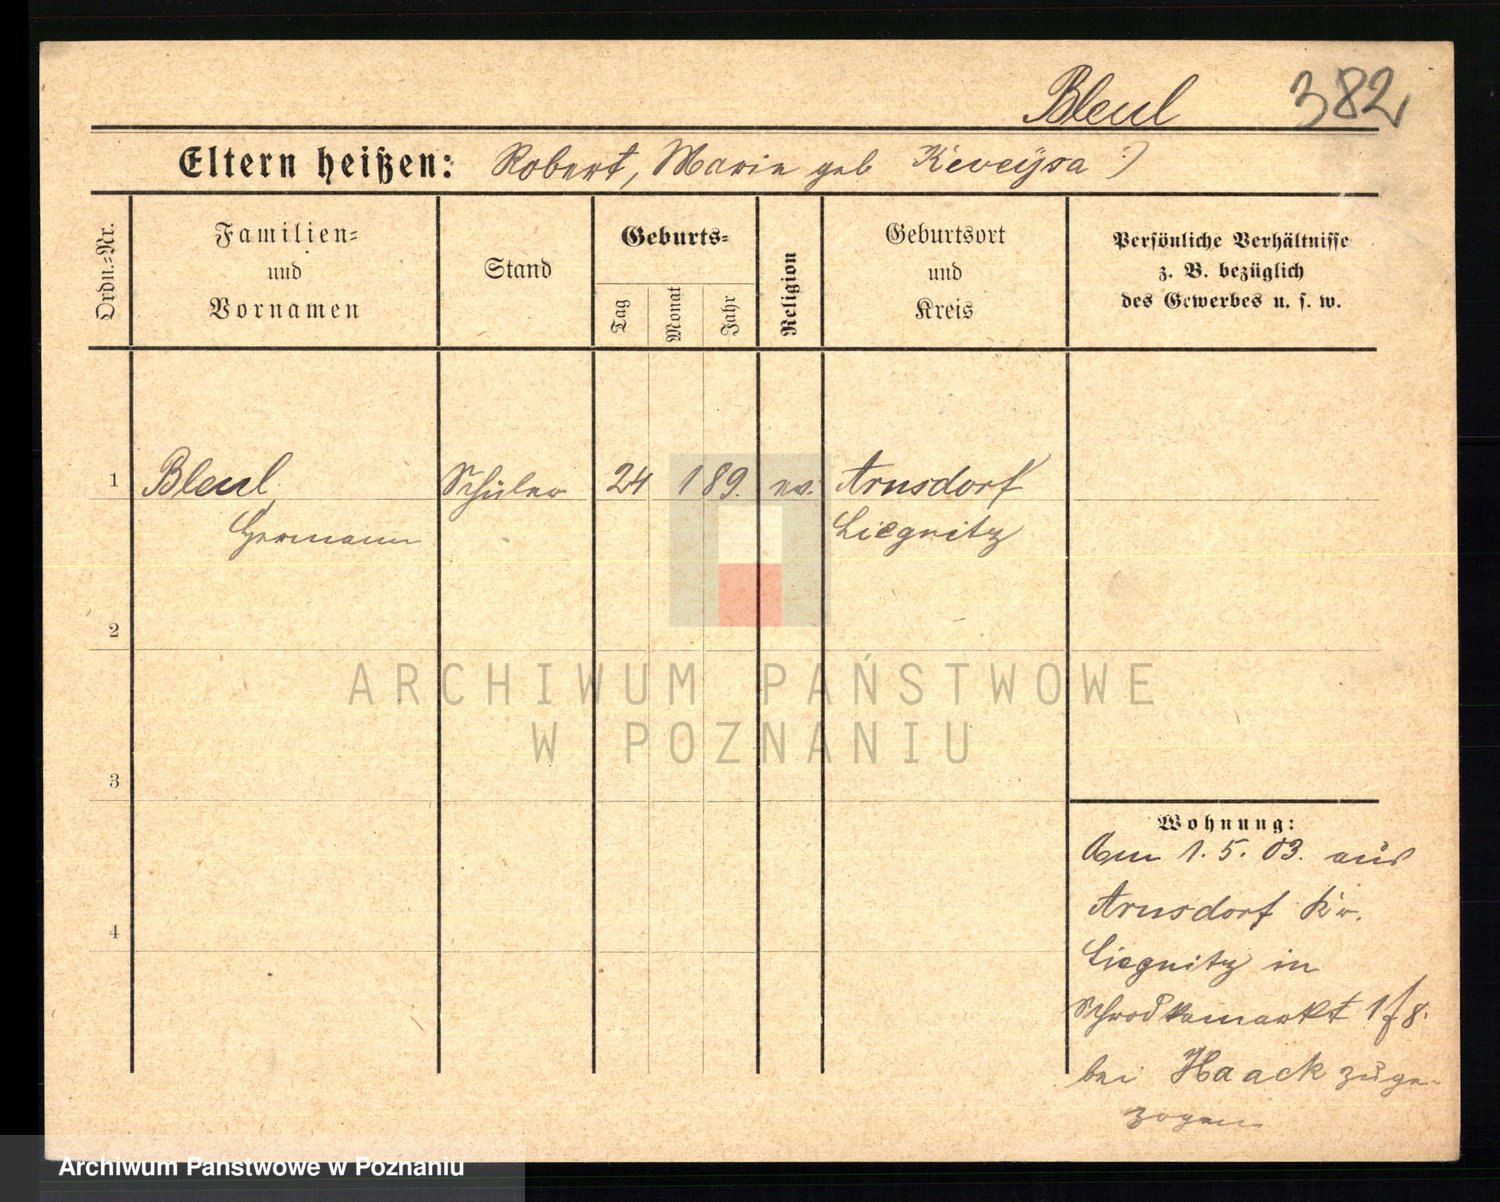 Bleul 382
Eltern heißen: Robert, Marie geb
Ordn.-Nr.
Familien-
und
Vornamen
Stand
Geburts-
Tag
Monat
Jahr
Religion
Geburtsort
und
Kreis
Persönliche Verhältnisse
z. B. bezüglich
des Gewerbes u. s. w.
1 Bleul, Schüler 24 1 89. ev. Arnsdorf
Hermann Liegnitz
2
ARCHIWUM PAŃSTWOWE
W POZNANIU
3
Wohnung:
Am 1. 5. 03. aus
Arnsdorf Kr.
4
Liegnitz in
Schrodkamarkt 1/8.
bei Haack zuge-
zogen
Archiwum Państwowe w Poznaniu